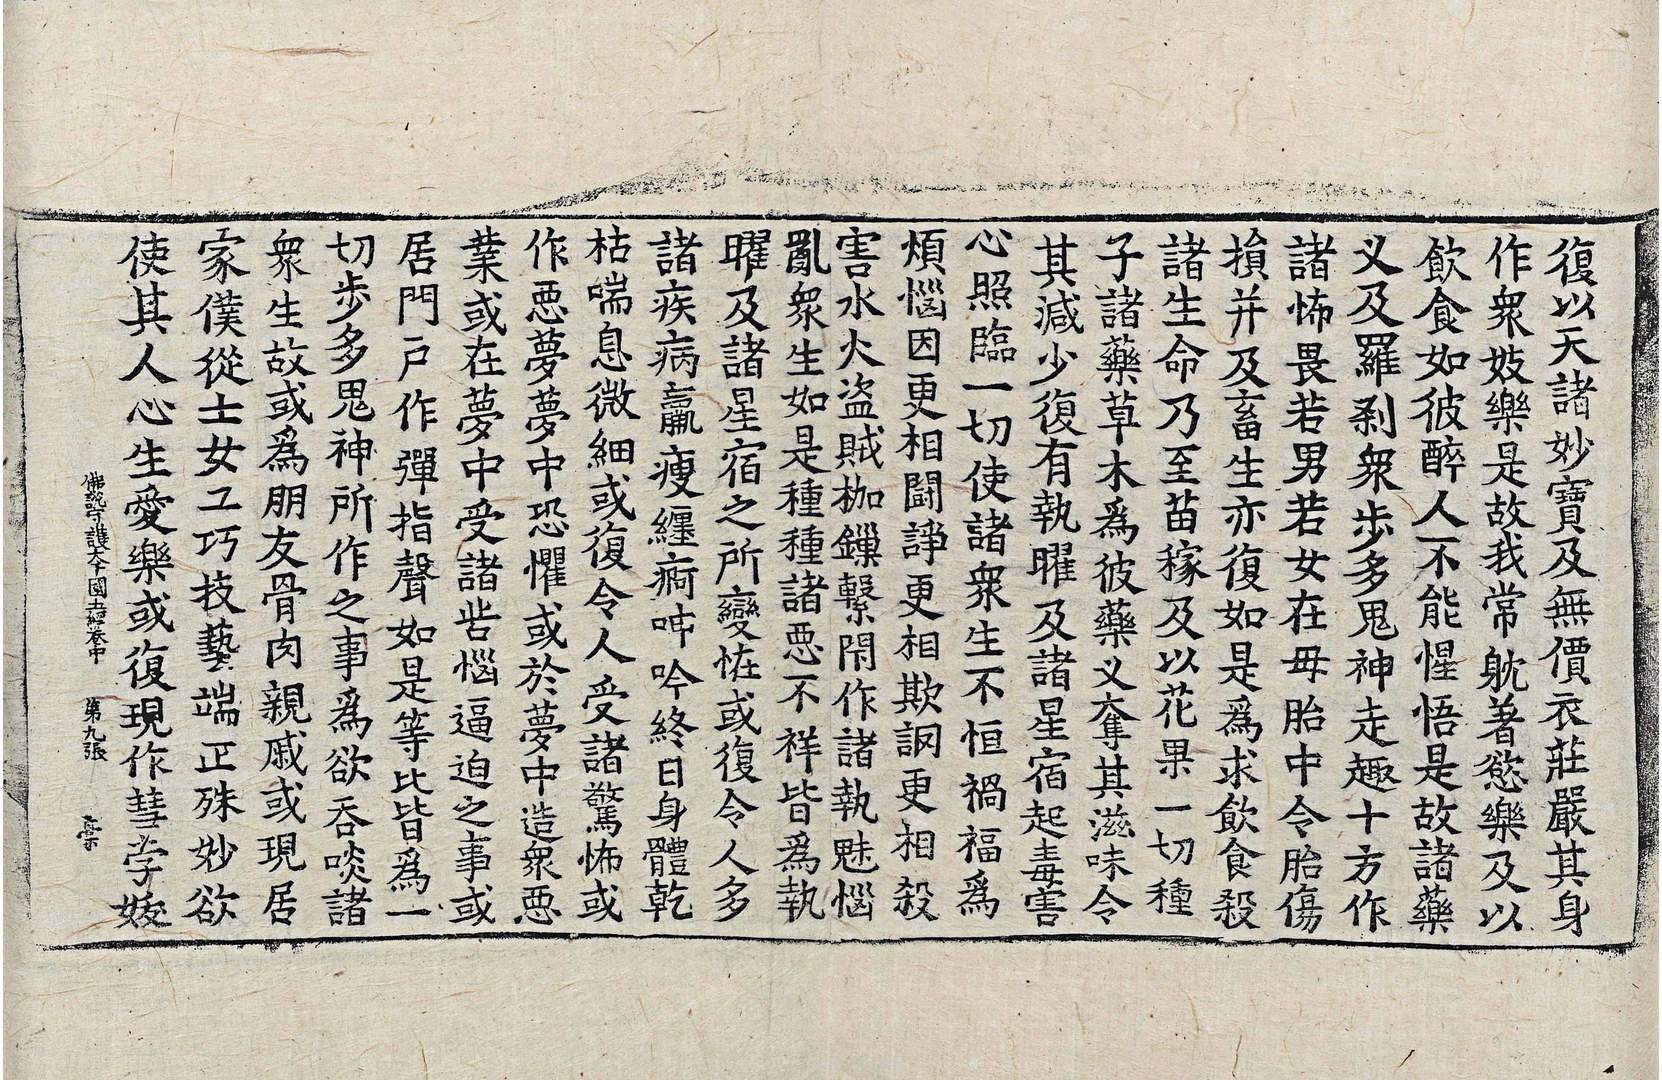 復以天諸妙寶及無價衣莊嚴其身
作衆妓樂是故我常躭著慾樂及以
飲食如彼醉人不能惺悟是故諸藥
义及羅刹衆步多鬼神走趣十方作
諸怖畏若男若女在母胎中令胎傷
損并及畜生亦復如是爲求飲食殺
諸生命乃至苗稼及以花果一切種
子諸藥草木爲彼藥义奪其滋味令
其減少復有執曜及諸星宿起毒害
心照臨一切使諸衆生不恒禍福爲
煩惱因更相鬪諍更相欺誷更相殺
害水火盜賊枷鏁繫閇作諸執魅惱
亂衆生如是種種諸惡不祥皆爲執
曜及諸星宿之所變恠或復令人多
諸疾病羸瘦纏痾呻吟終日身體乾
枯喘息微細或復令人受諸驚怖或
作惡夢夢中恐懼或於夢中造衆惡
業或在夢中受諸苦惱逼迫之事或
居門戶作彈指聲如是等比皆爲一
切步多鬼神所作之事爲欲吞啖諸
衆生故或爲朋友骨肉親戚或現居
家僕從士女工巧技藝端正殊妙欲
使其人心生愛樂或復現作彗孛妭
佛說守護大千國土經卷中 第九張 槀